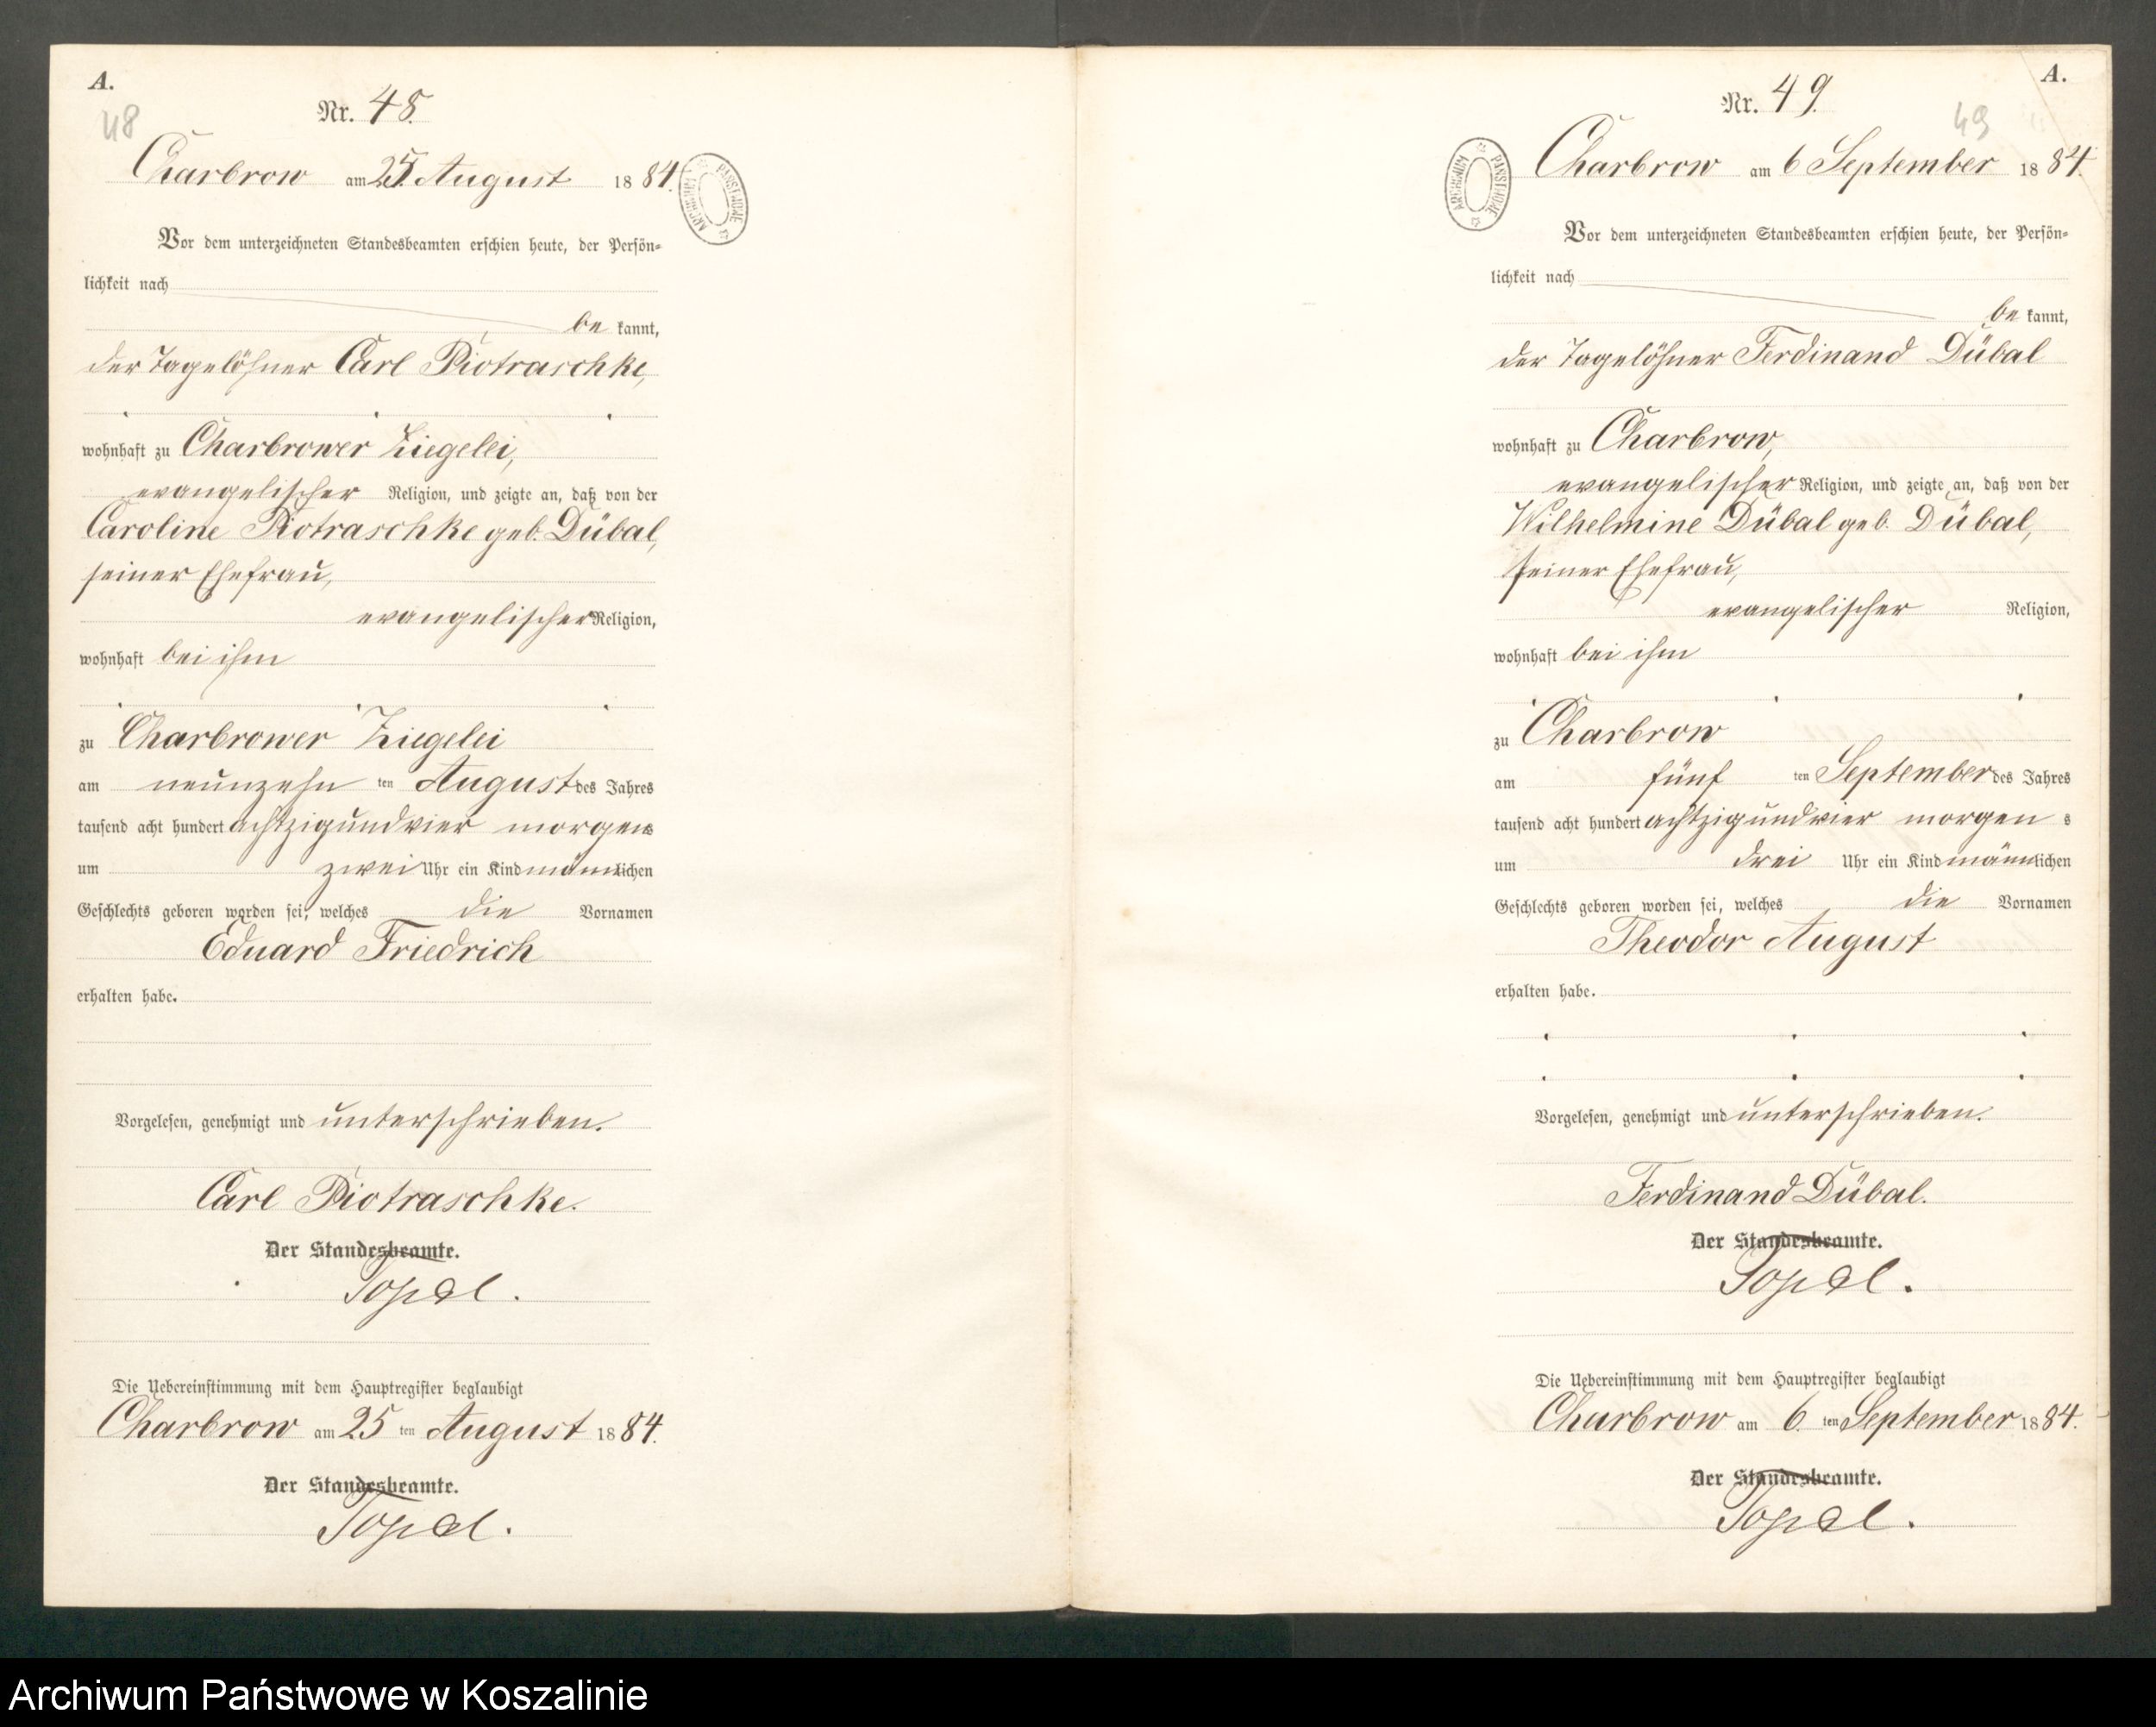 A.
48
Nr. 48.
Charbrow am 25. August 1884.
ARCHIWUM PAŃSTWOWE
Vor dem unterzeichneten Standesbeamten erschien heute, der Persön-
lichkeit nach
be kannt,
der Tagelöhner Carl Piotraschke,
wohnhaft zu Charbrower Ziegelei,
evangelischer Religion, und zeigte an, daß von der
Caroline Piotraschke geb. Dübal,
seiner Ehefrau,
evangelischer Religion,
wohnhaft bei ihm
zu Charbrower Ziegelei
am neunzehn ten August des Jahres
tausend acht hundert achtzigundvier morgens
um zwei Uhr ein Kind männlichen
Geschlechts geboren worden sei, welches die Vornamen
Eduard Friedrich
erhalten habe.
Vorgelesen, genehmigt und unterschrieben.
Carl Piotraschke.
Der Standesbeamte.
Topel.
Die Uebereinstimmung mit dem Hauptregister beglaubigt
Charbrow am 25 ten August 1884.
Der Standesbeamte.
Topel.
A.
49
Nr. 49.
Charbrow am 6 September 1884.
ARCHIWUM PAŃSTWOWE
Vor dem unterzeichneten Standesbeamten erschien heute, der Persön-
lichkeit nach
be kannt,
der Tagelöhner Ferdinand Dübal
wohnhaft zu Charbrow,
evangelischer Religion, und zeigte an, daß von der
Wilhelmine Dübal geb. Dübal,
seiner Ehefrau,
evangelischer Religion,
wohnhaft bei ihm
zu Charbrow
am fünf ten September des Jahres
tausend acht hundert achtzigundvier morgen s
um drei Uhr ein Kind männlichen
Geschlechts geboren worden sei, welches die Vornamen
Theodor August
erhalten habe.
Vorgelesen, genehmigt und unterschrieben.
Ferdinand Dübal.
Der Standesbeamte.
Topel.
Die Uebereinstimmung mit dem Hauptregister beglaubigt
Charbrow am 6. ten September 1884.
Der Standesbeamte.
Topel.
Archiwum Państwowe w Koszalinie